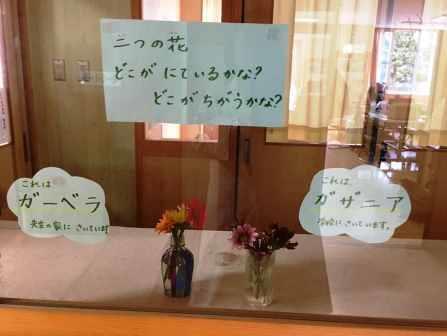 二つの花
どこが にているかな?
どこが ちがうかな?
これは
ガーベラ
先生の家に さいています
これは
ガザニア
学校に さいています。